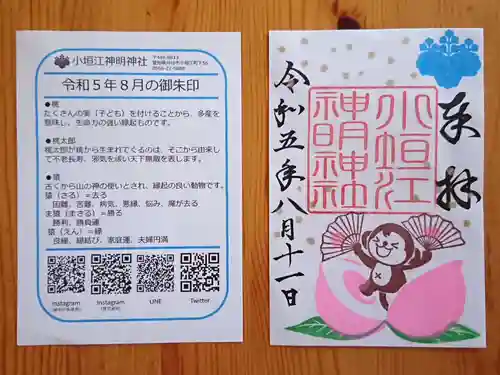 小垣江神明神社
令和５年８月の御朱印
●桃
たくさんの実（子ども）を付けることから、多産を
意味し、生命力の強い縁起ものです。
●桃太郎
桃太郎が桃から生まれてくるのは、そこから由来し
て不老長寿、邪気を祓い天下無敵を表します。
●猿
古くから山の神の使いとされ、縁起の良い動物です。
猿（さる）＝去る
困難、苦難、病気、悪縁、悩み、厄が去る
ま猿（まさる）＝勝る
勝利、勝負運
猿（えん）＝縁
良縁、縁結び、家庭運、夫婦円満
Instagram
Instagram
LINE
Twitter
奉拝
小垣江
神明神社
令和五年八月十一日